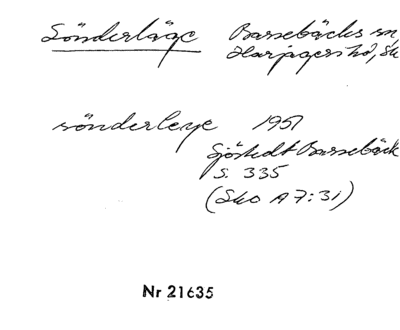 Sönderläge Barsebäcks sn,
Harjagers hd, Sk
sönderleye 1951
Sjöstedt Barsebäck
s. 335
(Sko A 7:31)
Nr 21635